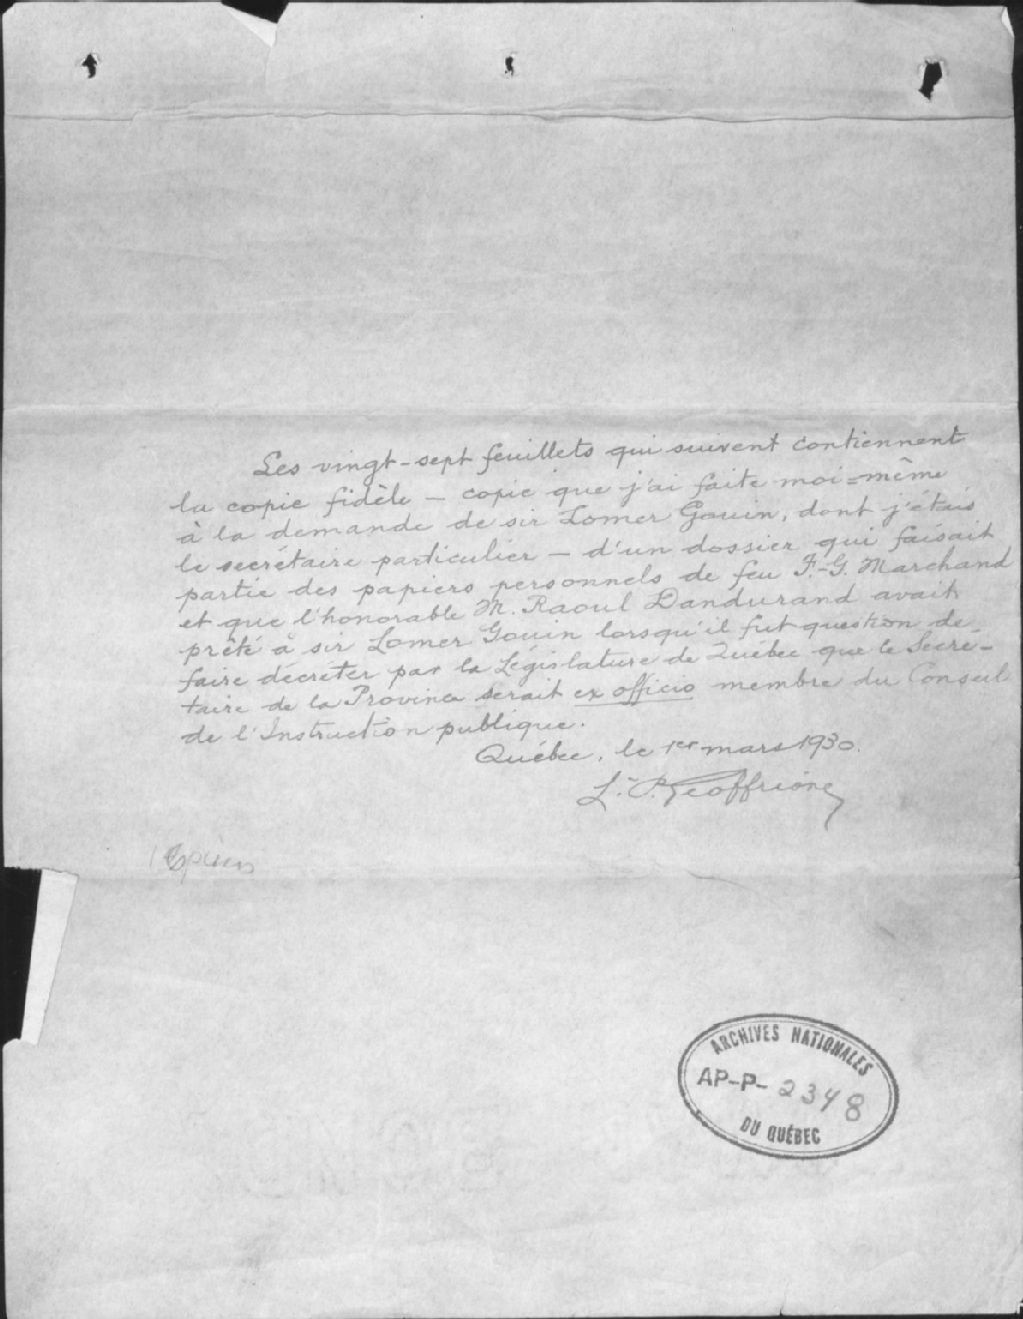 Les vingt-sept feuillets qui suivent contiennent
la copie fidèle — copie que j'ai faite moi=même
à la demande de sir Lomer Gouin, dont j'étais
le secrétaire particulier — d'un dossier qui faisait
partie des papiers personnels de feu F.-G. Marchand
et que l'honorable M. Raoul Dandurand avait
prêté à sir Lomer Gouin lorsqu'il fut question de
faire décréter par la Législature de Québec que le Secré-
taire de la Province serait ex officio membre du Conseil
de l'Instruction publique.
Québec, le 1er mars 1930.
L.-P. Geoffrion
ARCHIVES NATIONALES
AP-P- 2348
DU QUÉBEC